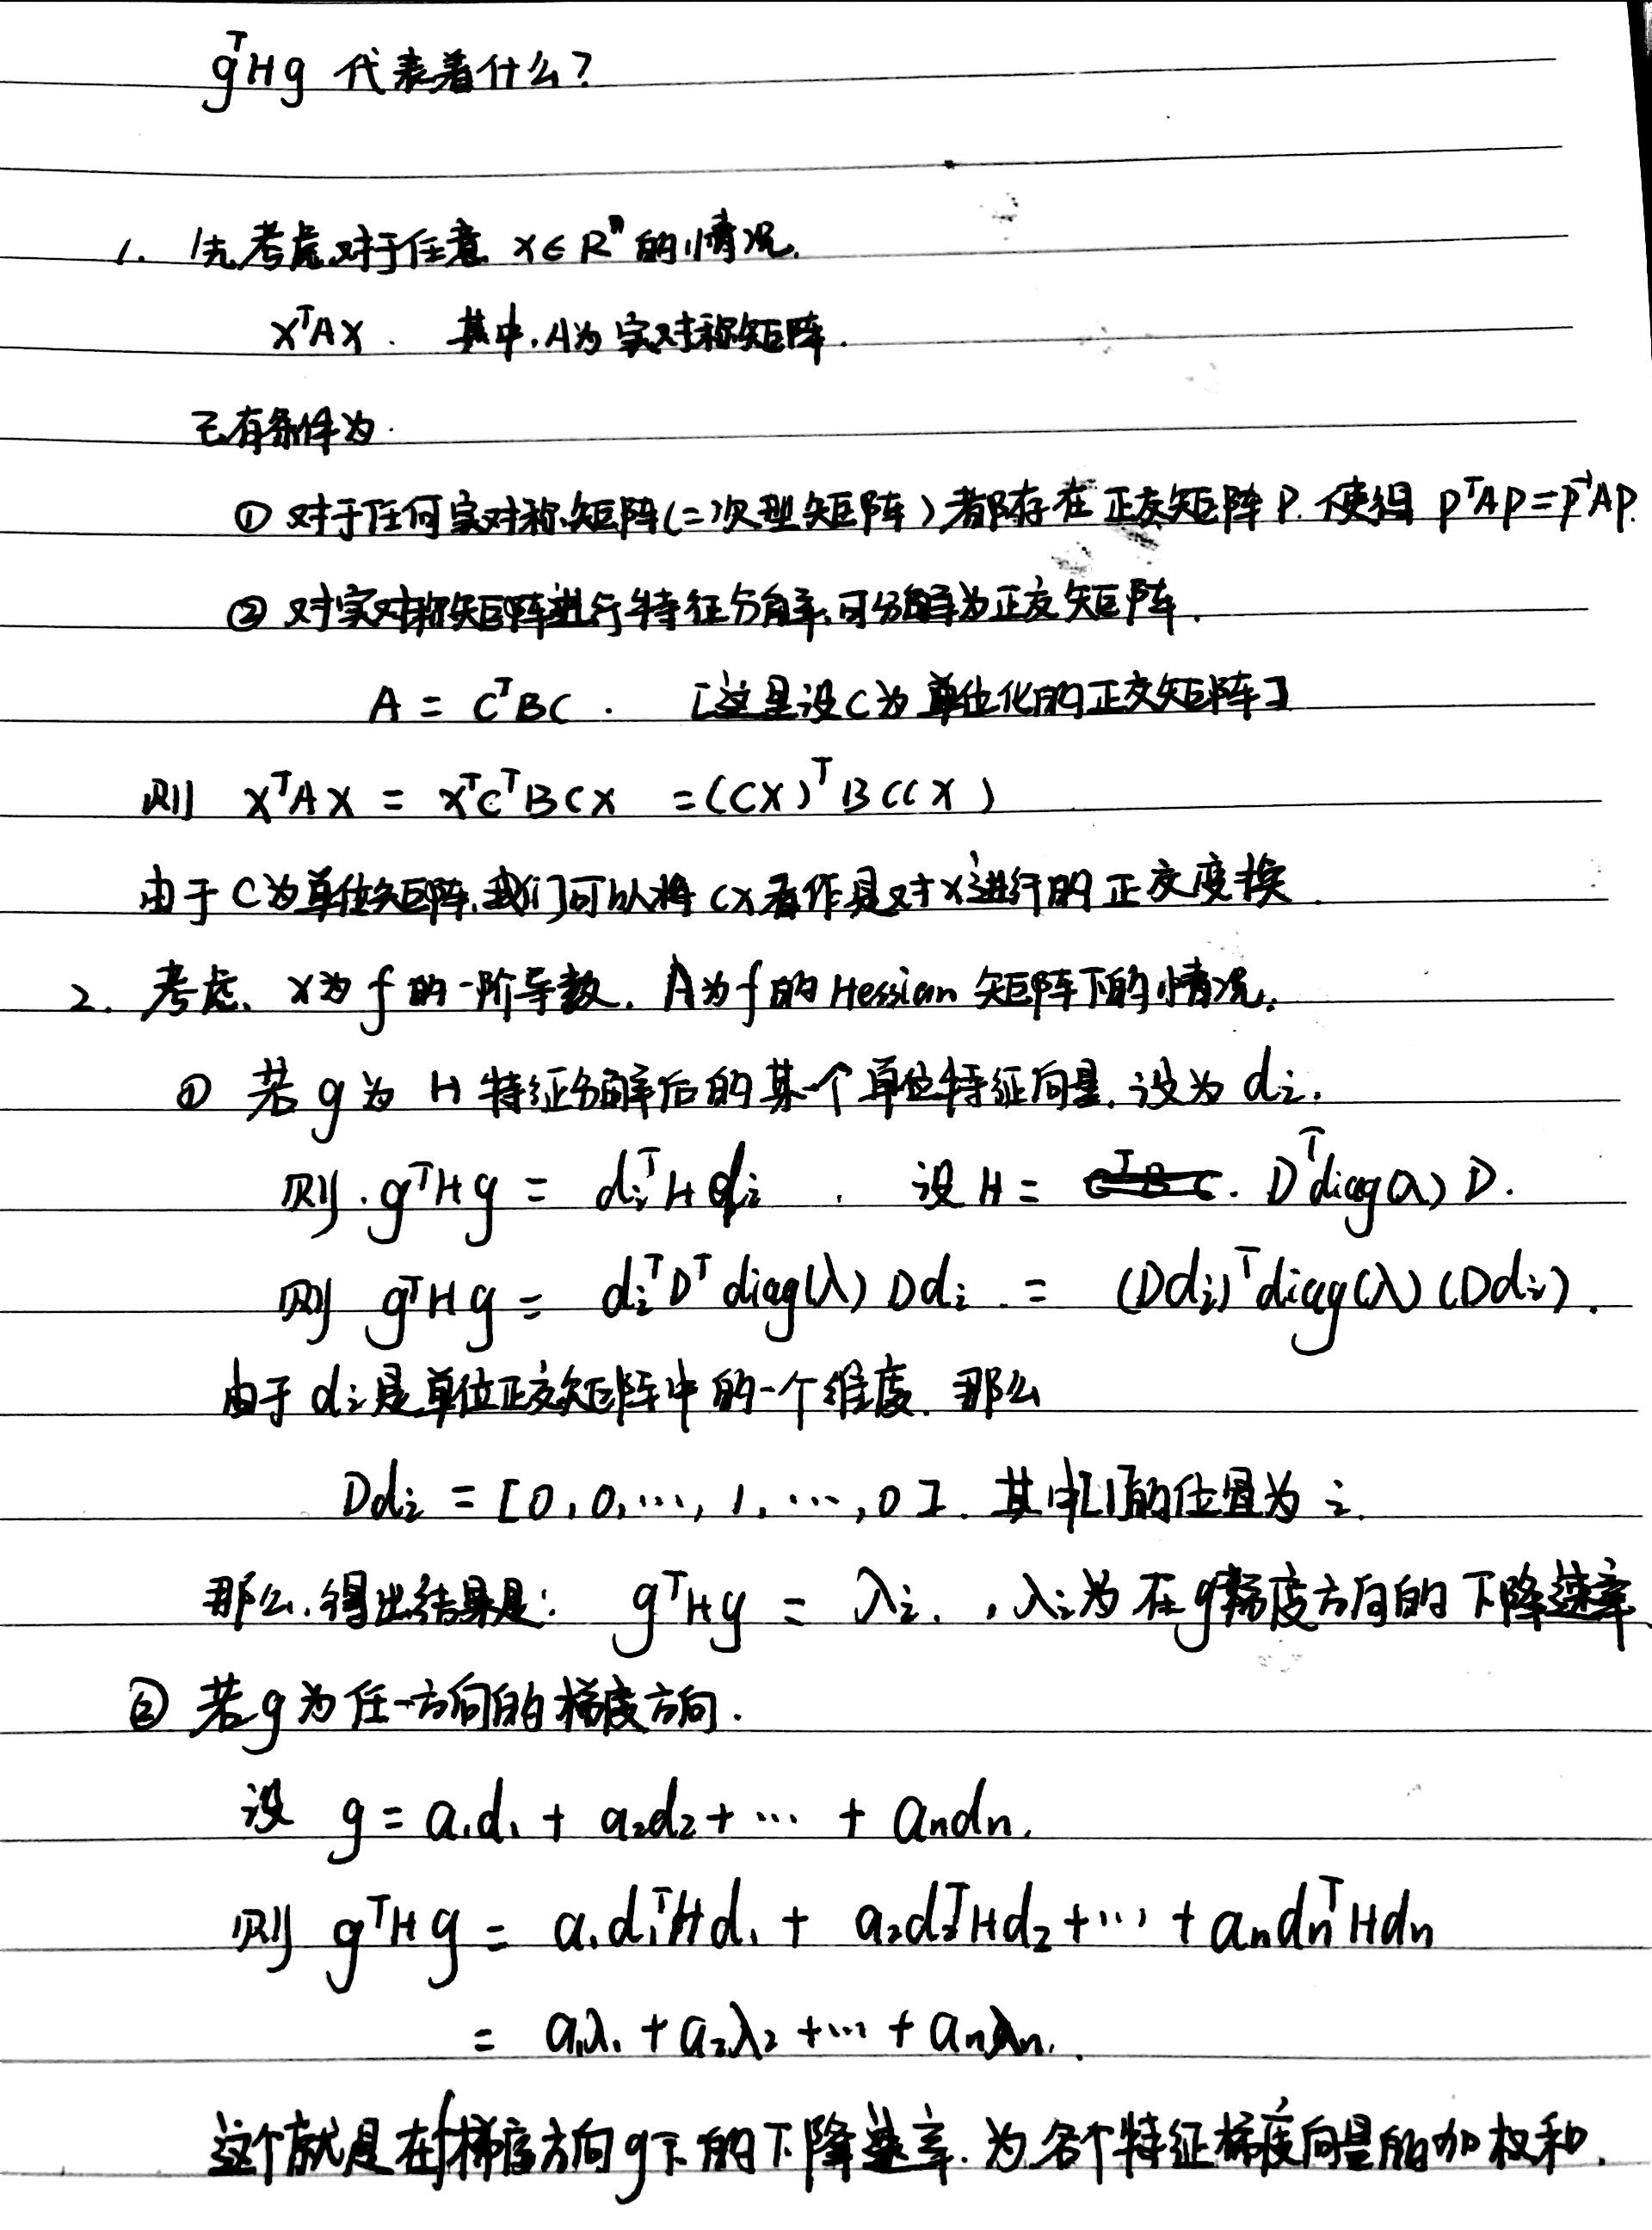 gᵀHg 代表着什么?
1. 先考虑对于任意 x∈Rⁿ 的情况.
xᵀAx. 其中,A为实对称矩阵.
已有条件为.
① 对于任何实对称矩阵(二次型矩阵)都存在正交矩阵P.使得 PᵀAP=P⁻¹AP.
② 对实对称矩阵进行特征分解,可分解为正交矩阵.
A = CᵀBC. [这里设C为单位化的正交矩阵]
则 xᵀAx = xᵀCᵀBCx =(Cx)ᵀB(Cx)
由于C为单位矩阵,我们可以将Cx看作是对x进行的正交变换.
2. 考虑、x为f的一阶导数. A为f的Hessian矩阵下的情况.
① 若g为H特征分解后的某一个单位特征向量.设为dᵢ.
则.gᵀHg = dᵢᵀHdᵢ . 设H = Dᵀdiag(λ)D.
则 gᵀHg = dᵢᵀDᵀdiag(λ)Ddᵢ. = (Ddᵢ)ᵀdiag(λ)(Ddᵢ).
由于dᵢ是单位正交矩阵中的一个维度.那么
Ddᵢ = [0,0,…,1,…,0]. 其中[1]的位置为i.
那么.得出结果是: gᵀHg = λᵢ. ,λᵢ为在g梯度方向的下降速率
② 若g为任一方向的梯度方向.
设 g = a₁d₁ + a₂d₂ + … + aₙdₙ.
则 gᵀHg = a₁d₁ᵀHd₁ + a₂d₂ᵀHd₂ + … + aₙdₙᵀHdₙ
= a₁λ₁ + a₂λ₂ + … + aₙλₙ.
这个就是在f梯度方向g下的下降速率.为各个特征梯度向量的加权和.